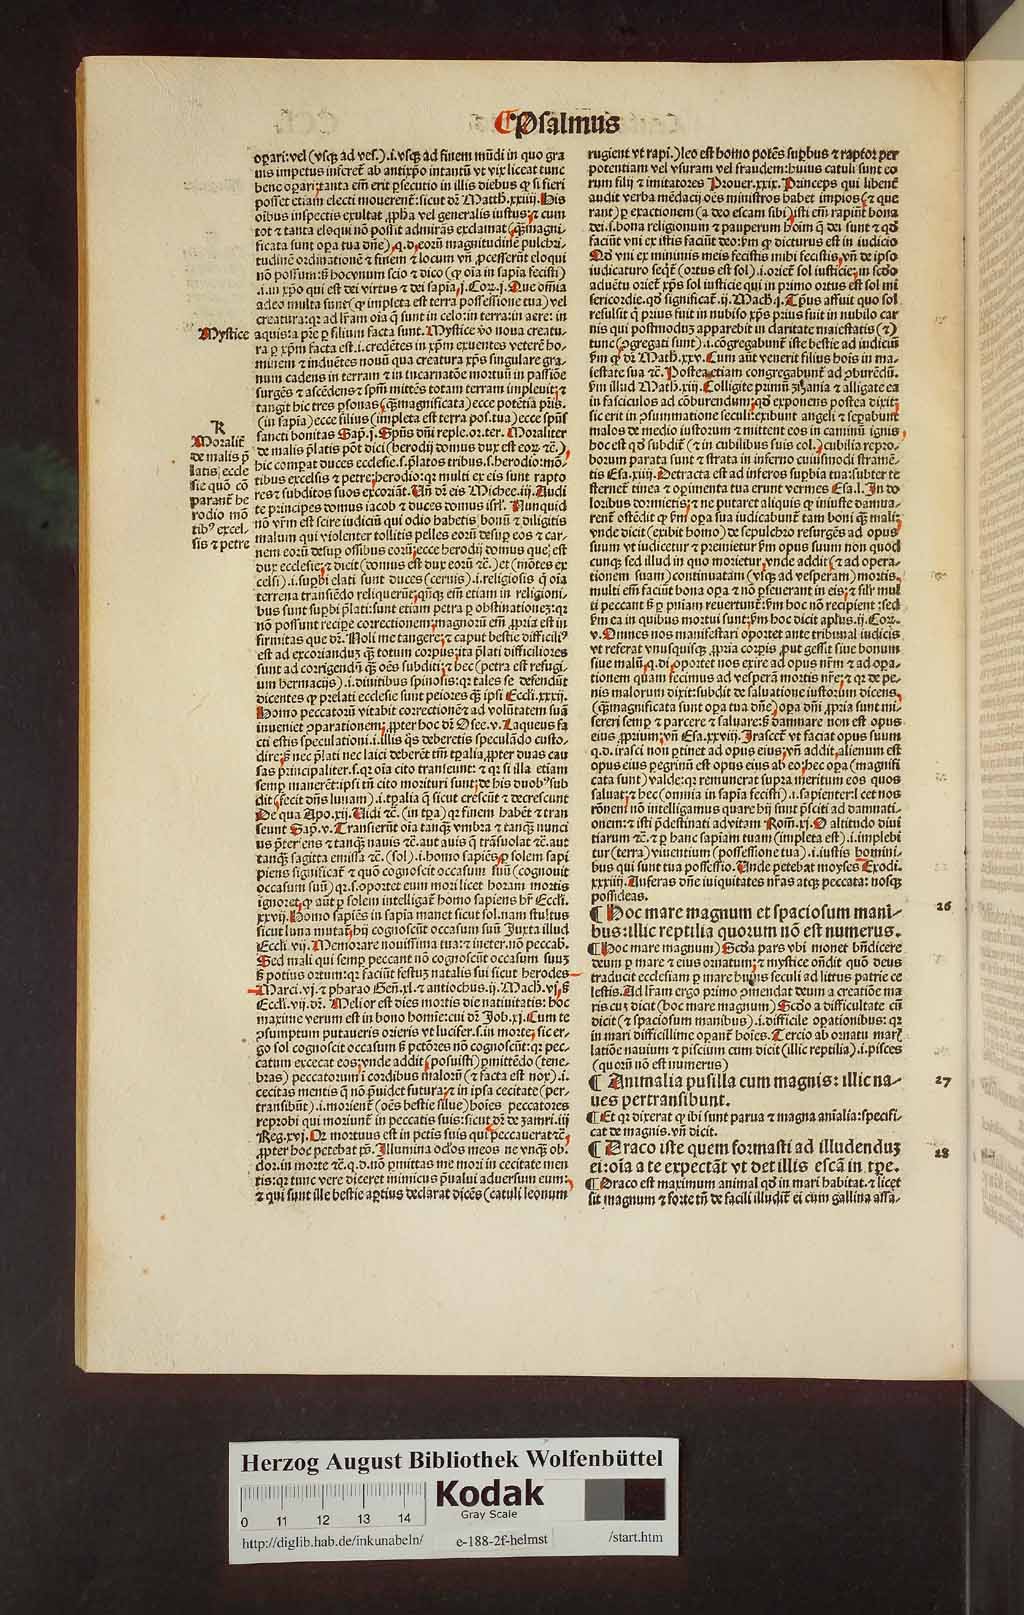 Psalmus
oꝑari: vel (vsqꝫ ad ves.) .i. vsqꝫ ad finem mūdi in quo gra
uis impetus inscret̄ ab antixp̄o intantū vt vix liceat tunc
bene oꝑari; tanta em̄ erit ꝑsecutio in illis diebus ꝙ si fieri
posset etiam electi mouerent̄: sicut dr̄ Matth. xxiiij. His
oībus inspectis exultat ꝓpha vel generalis iustus; ⁊ cum
tot ⁊ tanta eloqui nō possit admirās exclamat (q̄ꝫ magni
ficata sunt oꝑa tua dn̄e) .q.d. eorū magnitudinē pulchri-
tudinē ordinationē ⁊ finem ⁊ locum vn̄ ꝓcesserūt eloqui
nō possum: s̄ hoc vnum scio ⁊ dico (ꝙ oīa in sapīa fecisti)
.i. in xp̄o qui est dei virtus ⁊ dei sapīa, j. Cor. j. Que om̄ia
adeo multa sunt (ꝙ impleta est terra possessione tua) vel
creatura: qꝛ ad lr̄am oīa q̄ sunt in celo: in terra: in aere: in
Mystice
aquis: a pr̄e ꝑ filium facta sunt. Mystice v̄o noua creatu-
ra ꝑ xp̄m facta est .i. credētes in xp̄m exuentes veterē ho-
minem ⁊ induētes nouū qua creatura xp̄s singulare gra-
num cadens in terram ⁊ in incarnatōe mortuū in passiōe
surgēs ⁊ ascēdens ⁊ sp̄m mittēs totam terram impleuit; ⁊
tangit hic tres ꝑsonas (q̄ꝫ magnificata) ecce potētia pr̄is.
(in sapīa) ecce filius (impleta est terra pos. tua) ecce sp̄us
sancti bonitas Sap. j. Sp̄us dn̄i reple. or. ter. Moraliter
R
Moralit̄
de malis p̄
latis ecclesie quō cō
parant̄ he
rodio mō
tibꝰ excel-
sis ⁊ petre
de malis p̄latis pōt dici (herodij domus dux est eoꝝ ⁊c̄.)
hic comꝑat duces ecclesie .s. p̄latos tribus .s. herodio: mō-
tibus excelsis ⁊ petre; herodio: qꝛ multi ex eis sunt rapto
res ⁊ subditos suos excoriāt. Vn̄ dr̄ eis Michee. iij. Audi
te principes domus iacob ⁊ duces domus isrl̄. Nunquid
nō vr̄m est scire iudiciū qui odio habetis bonū ⁊ diligitis
malum qui violenter tollitis pelles eorū desuꝑ eos ⁊ car-
nem eorū desuꝑ ossibus eorū; ecce herodij domus que; est
dux ecclesie; ⁊ dicit (domus est dux eorū ⁊c̄.) et (mōtes ex
celsi) .i. suꝑbi elati sunt duces (ceruis) .i. religiosis q̄ oīa
terrena transiēdo reliquerūt; qn̄qꝫ em̄ etiam in religioni-
bus sunt suꝑbi p̄lati: sunt etiam petra ꝑ obstinationeꝫ: qꝛ
nō possunt recipe correctionem; magnorū em̄ ꝓpria est in
firmitas que dr̄. Noli me tangere; ⁊ caput bestie difficiliꝰ
est ad excorianduꝫ q̄ꝫ totum corpus; ita p̄lati difficiliores
sunt ad corrigendū q̄ꝫ oēs subditi; ⁊ hec (petra est refugi-
um hermacijs) .i. diuitibus spinosis: qꝛ tales se defendūt
dicentes ꝙ prelati ecclesie sunt peiores q̄ꝫ ipsi Eccl̄i. xxxij.
Homo peccatorū vitabit correctionē ⁊ ad volūtatem suā
inueniet ꝯparationem; ꝓpter hoc dr̄ Osee. v. Laqueus fa
cti estis speculationi .i. illis q̄s deberetis speculādo custo-
dire; s̄ nec p̄lati nec laici deberēt tm̄ tꝑalia, ꝓpter duas cau
sas principaliter .s. qꝛ oīa cito transeunt: ⁊ qꝛ si illa etiam
semꝑ manerēt: ipsi tn̄ cito morituri sunt; de his duobꝰ sub
dit (fecit dn̄s lunam) .i. tꝑalia q̄ sicut crescūt ⁊ decrescunt
De qua Apo. xij. Vidi ⁊c̄. (in tꝑa) qꝛ finem habēt ⁊ tran
seunt Sap. v. Transierūt oīa tanqꝫ vmbra ⁊ tanqꝫ nunci
us p̄teriens ⁊ tanqꝫ nauis ⁊c̄. aut auis q̄ trāsuolat ⁊c̄. aut
tanqꝫ sagitta emissa ⁊c̄. (sol) .i. homo sapiēs; ꝑ solem sapi
piens significat̄ ⁊ quō cognoscit occasum suū (cognouit
occasum suū) qꝛ .s. oportet eum mori licet horam mortis
ignoret; ꝙ aūt ꝑ solem intelligat̄ homo sapiens hr̄ Eccl̄i.
xxvij. Homo sapiēs in sapīa manet sicut sol. nam stultus
sicut luna mutat̄; hij cognoscūt occasum suū Juxta illud
Eccl̄i. vij. Memorare nouissima tua: ⁊ in eter. nō peccab.
Sed mali qui semꝑ peccant nō cognoscūt occasum suuꝫ
s̄ potius ortum: qꝛ faciūt festuꝫ natalis sui sicut herodes
Marci. vj. ⁊ pharao Gen̄. xl. ⁊ antiochus. ij. Mach. vj. s̄
Eccl̄i. vij. dr̄. Melior est dies mortis die natiuitatis: hoc
maxime verum est in bono homīe: cui dr̄ Job. xj. Cum te
ꝯsumptum putaueris orieris vt lucifer. s. in morte; sic er-
go sol cognoscit occasum s̄ pctōres nō cognoscūt: qꝛ pec-
catum excecat eos; vnde addit (posuisti) ꝑmittēdo (tene-
bras) peccatorum in cordibus malorū (⁊ facta est nox) .i.
cecitas mentis q̄ nō p̄uidet futura; ⁊ in ipsa cecitate (per-
transibūt) .i. morient̄ (oēs bestie silue) hoīes peccatores
reprobi qui moriunt̄ in peccatis suis: sicut dr̄ de zamri. iij
Reg. xvj. Qꝛ mortuus est in pctis suis qui peccauerat ⁊c̄,
ꝓpter hoc petebat ꝓp̄. Illumina oclos meos ne vnqꝫ ob-
dor. in morte ⁊c̄. q.d. nō ꝑmittas me mori in cecitate men
tis: qꝛ tunc vere diceret inimicus p̄ualui aduersum eum:
⁊ qui sunt ille bestie aꝑtius declarat dicēs (catuli leonum
rugient vt rapi.) leo est homo potēs suꝑbus ⁊ raptor per
potentiam vel vsuram vel fraudem: huius catuli sunt eo
rum filij ⁊ imitatores Prouer. xxix. Princeps qui libent̄
audit verba mēdacij oēs ministros habet impios (⁊ que
rant) ꝑ exactionem (a deo escam sibi) isti em̄ rapiūt bona
dei .s. bona religionum ⁊ pauperum hoīm q̄ dei sunt ⁊ qd̄
faciūt vni ex istis faciūt deo: s̄m ꝙ dicturus est in iudicio
Qd̄ vni ex minimis meis fecistis mihi fecistis, vn̄ de ipso
iudicaturo seqt̄ (ortus est sol) .i. oriet̄ sol iusticie; in scd̄o
aduētu oriet̄ xp̄s sol iusticie qui in primo ortus est sol mi
sericordie. qd̄ significat̄ .ij. Mach. j. Tp̄us affuit quo sol
refulsit q̄ prius fuit in nubilo xp̄s prius fuit in nubilo car
nis qui postmoduꝫ apparebit in claritate maiestatis (⁊)
tunc (ꝯgregati sunt) .i. cōgregabunt̄ iste bestie ad iudiciū
s̄m ꝙ dr̄ Math. xxv. Cum aūt venerit filius hoīs in ma-
iestate sua ⁊c̄. Postea etiam congregabunt̄ ad ꝯburēdū.
s̄m illud Math. xiij. Colligite primū zizania ⁊ alligate ea
in fasciculos ad cōburendum; qd̄ exponens postea dixit;
sic erit in ꝯsummatione seculi: exibunt angeli ⁊ seꝑabunt
malos de medio iustorum ⁊ mittent eos in caminū ignis,
hoc est qd̄ subdit̄ (⁊ in cubilibus suis col.) cubilia repro-
borum parata sunt ⁊ strata in inferno cuiusmodi stramē-
tis Esa. xiiij. Detracta est ad inferos suꝑbia tua: subter te
sternet̄ tinea ⁊ oꝑimenta tua erunt vermes Esa. l. In do-
loribus dormietis; ⁊ ne putaret aliquis ꝙ iniuste damna-
rent̄ ostēdit ꝙ s̄m oꝑa sua iudicabunt̄ tam boni q̄ꝫ mali;
vnde dicit (exibit homo) de sepulchro resurgēs ad opus
suum vt iudicetur ⁊ premietur s̄m opus suum non quod
cunqꝫ sed illud in quo morietur; vnde addit (⁊ ad opera-
tionem suam) continuatam (vsqꝫ ad vesperam) mortis.
multi em̄ faciūt bona oꝑa ⁊ nō ꝑseuerant in eis; ⁊ sil̄r mul
ti peccant s̄ ꝑ pn̄iam reuertunt̄: s̄m hoc nō recipient: sed
s̄m ea in quibus mortui sunt; s̄m hoc dicit aplūs. ij. Cor.
v. Omnes nos manifestari oportet ante tribunal iudicis
vt referat vnusquisqꝫ ꝓpria corꝑis ꝓut gessit siue bonum
siue malū, q.d. oportet nos exire ad opus nr̄m ⁊ ad oꝑa-
tionem quam fecimus ad vesperā mortis nr̄e; ⁊ qꝛ de pe-
nis malorum dixit: subdit de saluatione iustorum dicens,
(q̄ꝫ magnificata sunt oꝑa tua dn̄e) oꝑa dn̄i ꝓpria sunt mi-
sereri semꝑ ⁊ parcere ⁊ saluare: s̄ damnare non est opus
eius ꝓprium, vn̄ Esa. xxviij. Irascet̄ vt faciat opus suum
q.d. irasci non ꝑtinet ad opus eius, vn̄ addit, alienum est
opus eius peregrinū est opus eius ab eo; hec oꝑa (magnifi
cata sunt) valde: qꝛ remunerat supra meritum eos quos
saluat; ⁊ hec (omnia in sapīa fecisti) .i. sapienter: licet nos
rōnem nō intelligamus quare hij sunt p̄sciti ad damnati-
onem: ⁊ isti p̄destinati ad vitam Rom̄. xj. O altitudo diui
tiarum ⁊c̄. ⁊ ꝑ hanc sapīam tuam (impleta est) .i. implebi
tur (terra) viuentium (possessione tua) .i. iustis homini-
bus qui sunt tua possessio. Vnde petebat moyses Exodi.
xxxiiij. Auferas dn̄e iniquitates nr̄as atqꝫ peccata: nosqꝫ
possideas.
¶ Hoc mare magnum et spaciosum mani-
bus: illic reptilia quorum nō est numerus.
26
¶ Hoc mare magnum) Scd̄a pars vbi monet bn̄dicere
deum ꝑ mare ⁊ eius ornatum; ⁊ mystice on̄dit quō deus
traducit ecclesiam ꝑ mare huius seculi ad littus patrie ce
lestis. Ad lr̄am ergo primo ꝯmendat deum a creatiōe ma
ris cuꝫ dicit (hoc mare magnum) Scd̄o a difficultate cū
dicit (⁊ spaciosum manibus) .i. difficile oꝑationibus: qꝛ
in mari difficillime oꝑant̄ hoīes. Tercio ab ornatu mar̄
latiōe nauium ⁊ piscium cum dicit (illic reptilia) .i. pisces
(quorū nō est numerus)
¶ Animalia pusilla cum magnis: illic na-
ues pertransibunt.
27
¶ Et qꝛ dixerat ꝙ ibi sunt parua ⁊ magna an̄alia: specifi-
cat de magnis. vn̄ dicit.
¶ Draco iste quem formasti ad illudenduꝫ
ei: oīa a te expectāt vt det illis escā in tp̄e.
28
¶ Draco est maximum animal qd̄ in mari habitat. ⁊ licet
sit magnum ⁊ forte tn̄ de facili illudit̄ ei cum gallina assa-
Herzog August Bibliothek Wolfenbüttel
0 11 12 13 14
Kodak
Gray Scale
http://diglib.hab.de/inkunabeln/ e-188-2f-helmst /start.htm